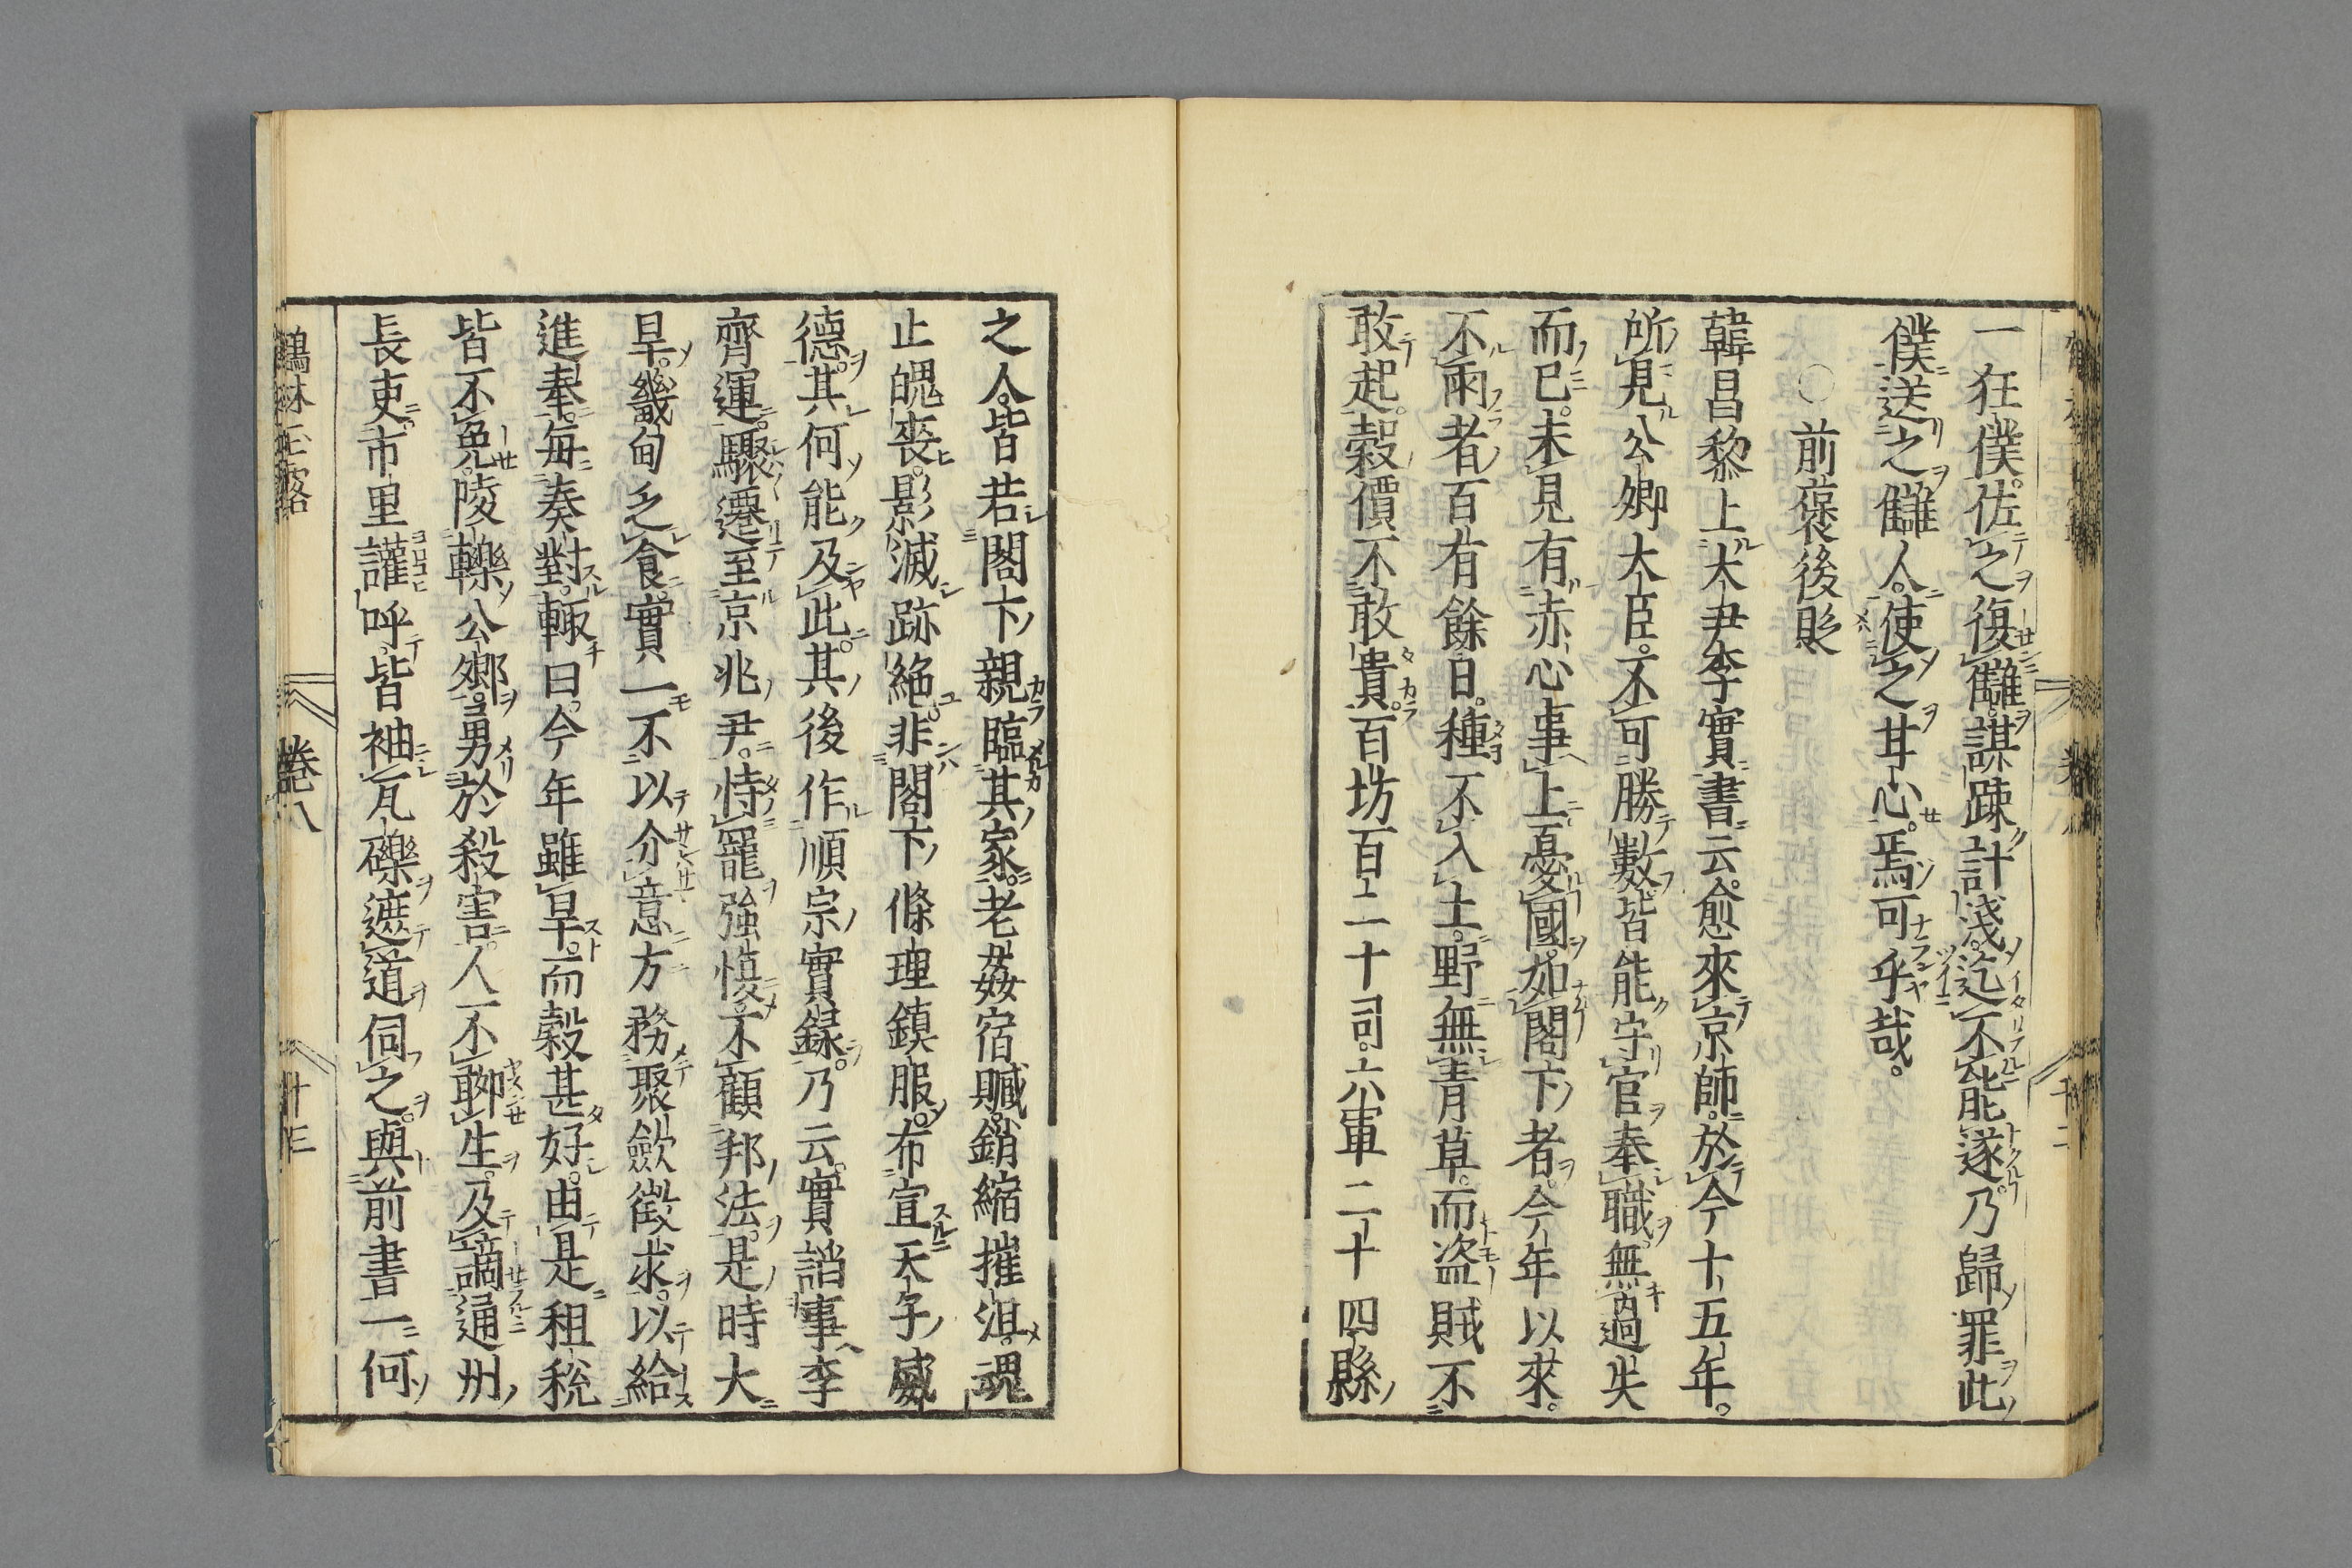 一狂僕。佐之復讎。謀疎計淺。迄不能遂。乃歸罪此
僕。送之讎人。使之甘心焉。可乎哉。
○前褒後貶
韓昌黎上大尹李實書云。愈來京師。於今十五年。
所見公卿大臣。不可勝數。皆能守官奉職。無過失
而已。未見有赤心事上。憂國如閣下者。今年以來。
不雨者百有餘日。種不入土。野無青草。而盜賊不
敢起。穀價不敢貴。百坊百二十司。六軍二十四縣
之人。皆若閣下親臨其家。老姦宿贓。銷縮摧沮。魂
止魄喪。影滅跡絶。非閣下條理鎮服。布宣天子威
德。其何能及此。其後作順宗實録。乃云。實諂事李
齊運。驟遷至京兆尹。恃寵強愎。不顧邦法。是時大
旱。畿甸乏食。實一不以介意。方務聚歛徴求。以給
進奉。毎奏對。輙曰。今年雖旱。而穀甚好。由是租税
皆不免。陵轢公卿。勇於殺害。人不聊生。及謫通州
長吏。市里讙呼。皆袖瓦礫遮道伺之。與前書一何
鶴林玉露
卷八
十三